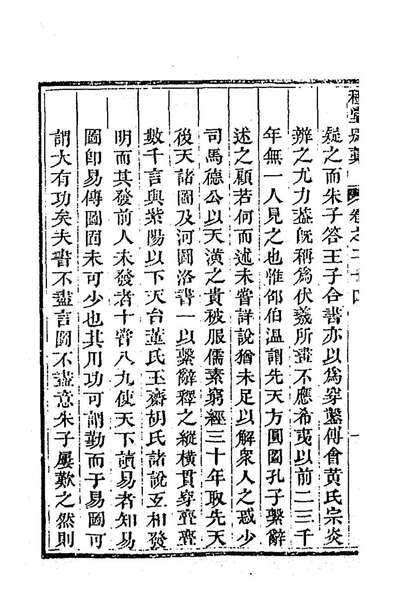 疑之而朱子答王子合書亦以爲穿鑿傅會黃氏宗炎
辨之尤力葢旣稱爲伏羲所畫不應希夷以前二三千
年無一人見之也惟邵伯温謂先天方圓圖孔子繫辭
述之顧若何而述未嘗詳說猶未足以解衆人之惑少
司馬德公以天潢之貴被服儒素窮經三十年取先天
後天諸圖及河圖洛書一以繫辭釋之縱橫貫穿亹亹
數千言與紫陽以下天台董氏玉齋胡氏諸說互相發
明而其發前人未發者十嘗八九使天下讀易者知易
圖卽易傳圖固未可少也其用功可謂勤而于易圖可
謂大有功矣夫書不盡言圖不盡意朱子屢歎之然則
卷之二十四
一